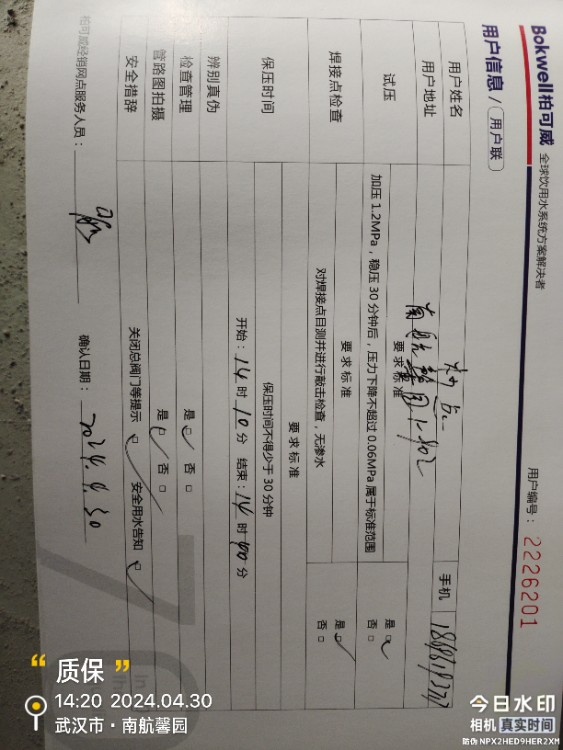 Bokwell柏可威 全球饮用水系统方案解决者
用户信息 / 用户联 用户编号： 2226201
用户姓名
手机
用户地址 南航馨园1-902
要求标准
试压 加压 1.2MPa，稳压 30 分钟后，压力下降不超过 0.06MPa 属于标准范围 是 否
要求标准
焊接点检查 对焊接点目测并进行敲击检查，无渗水 是 否
要求标准
保压时间 保压时间不得少于 30 分钟
开始：14 时 10 分 结束：14 时 40 分
辨别真伪
检查管理 是 否
管路图拍摄 是 否
安全措辞 关闭总阀门等提示 安全用水告知
柏可威经销网点服务人员： 确认日期：2024.4.30
“质保”
14:20 2024.04.30
武汉市·南航馨园
今日水印
相机 真实时间
防伪 NPX2HED9HER2XM